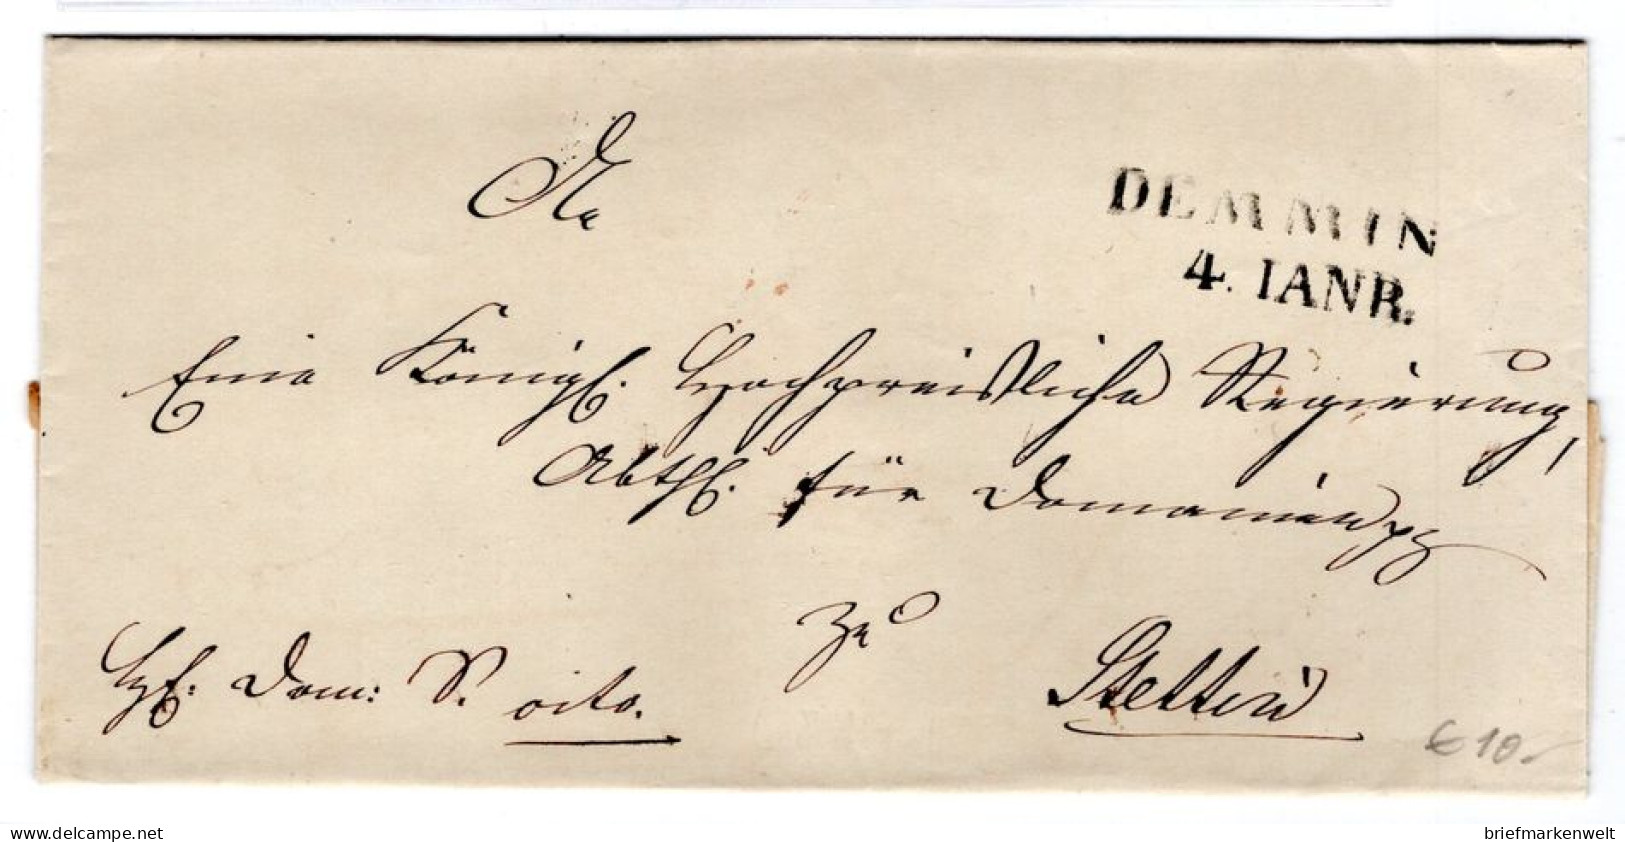 An
DEMMIN
4. IANR.
Eine Königl. Hochpreisliche Regierung,
Abthl. für Domainen
zu
Dom: S. cito.
Stettin
€ 10.-
www.delcampe.net
briefmarkenwelt